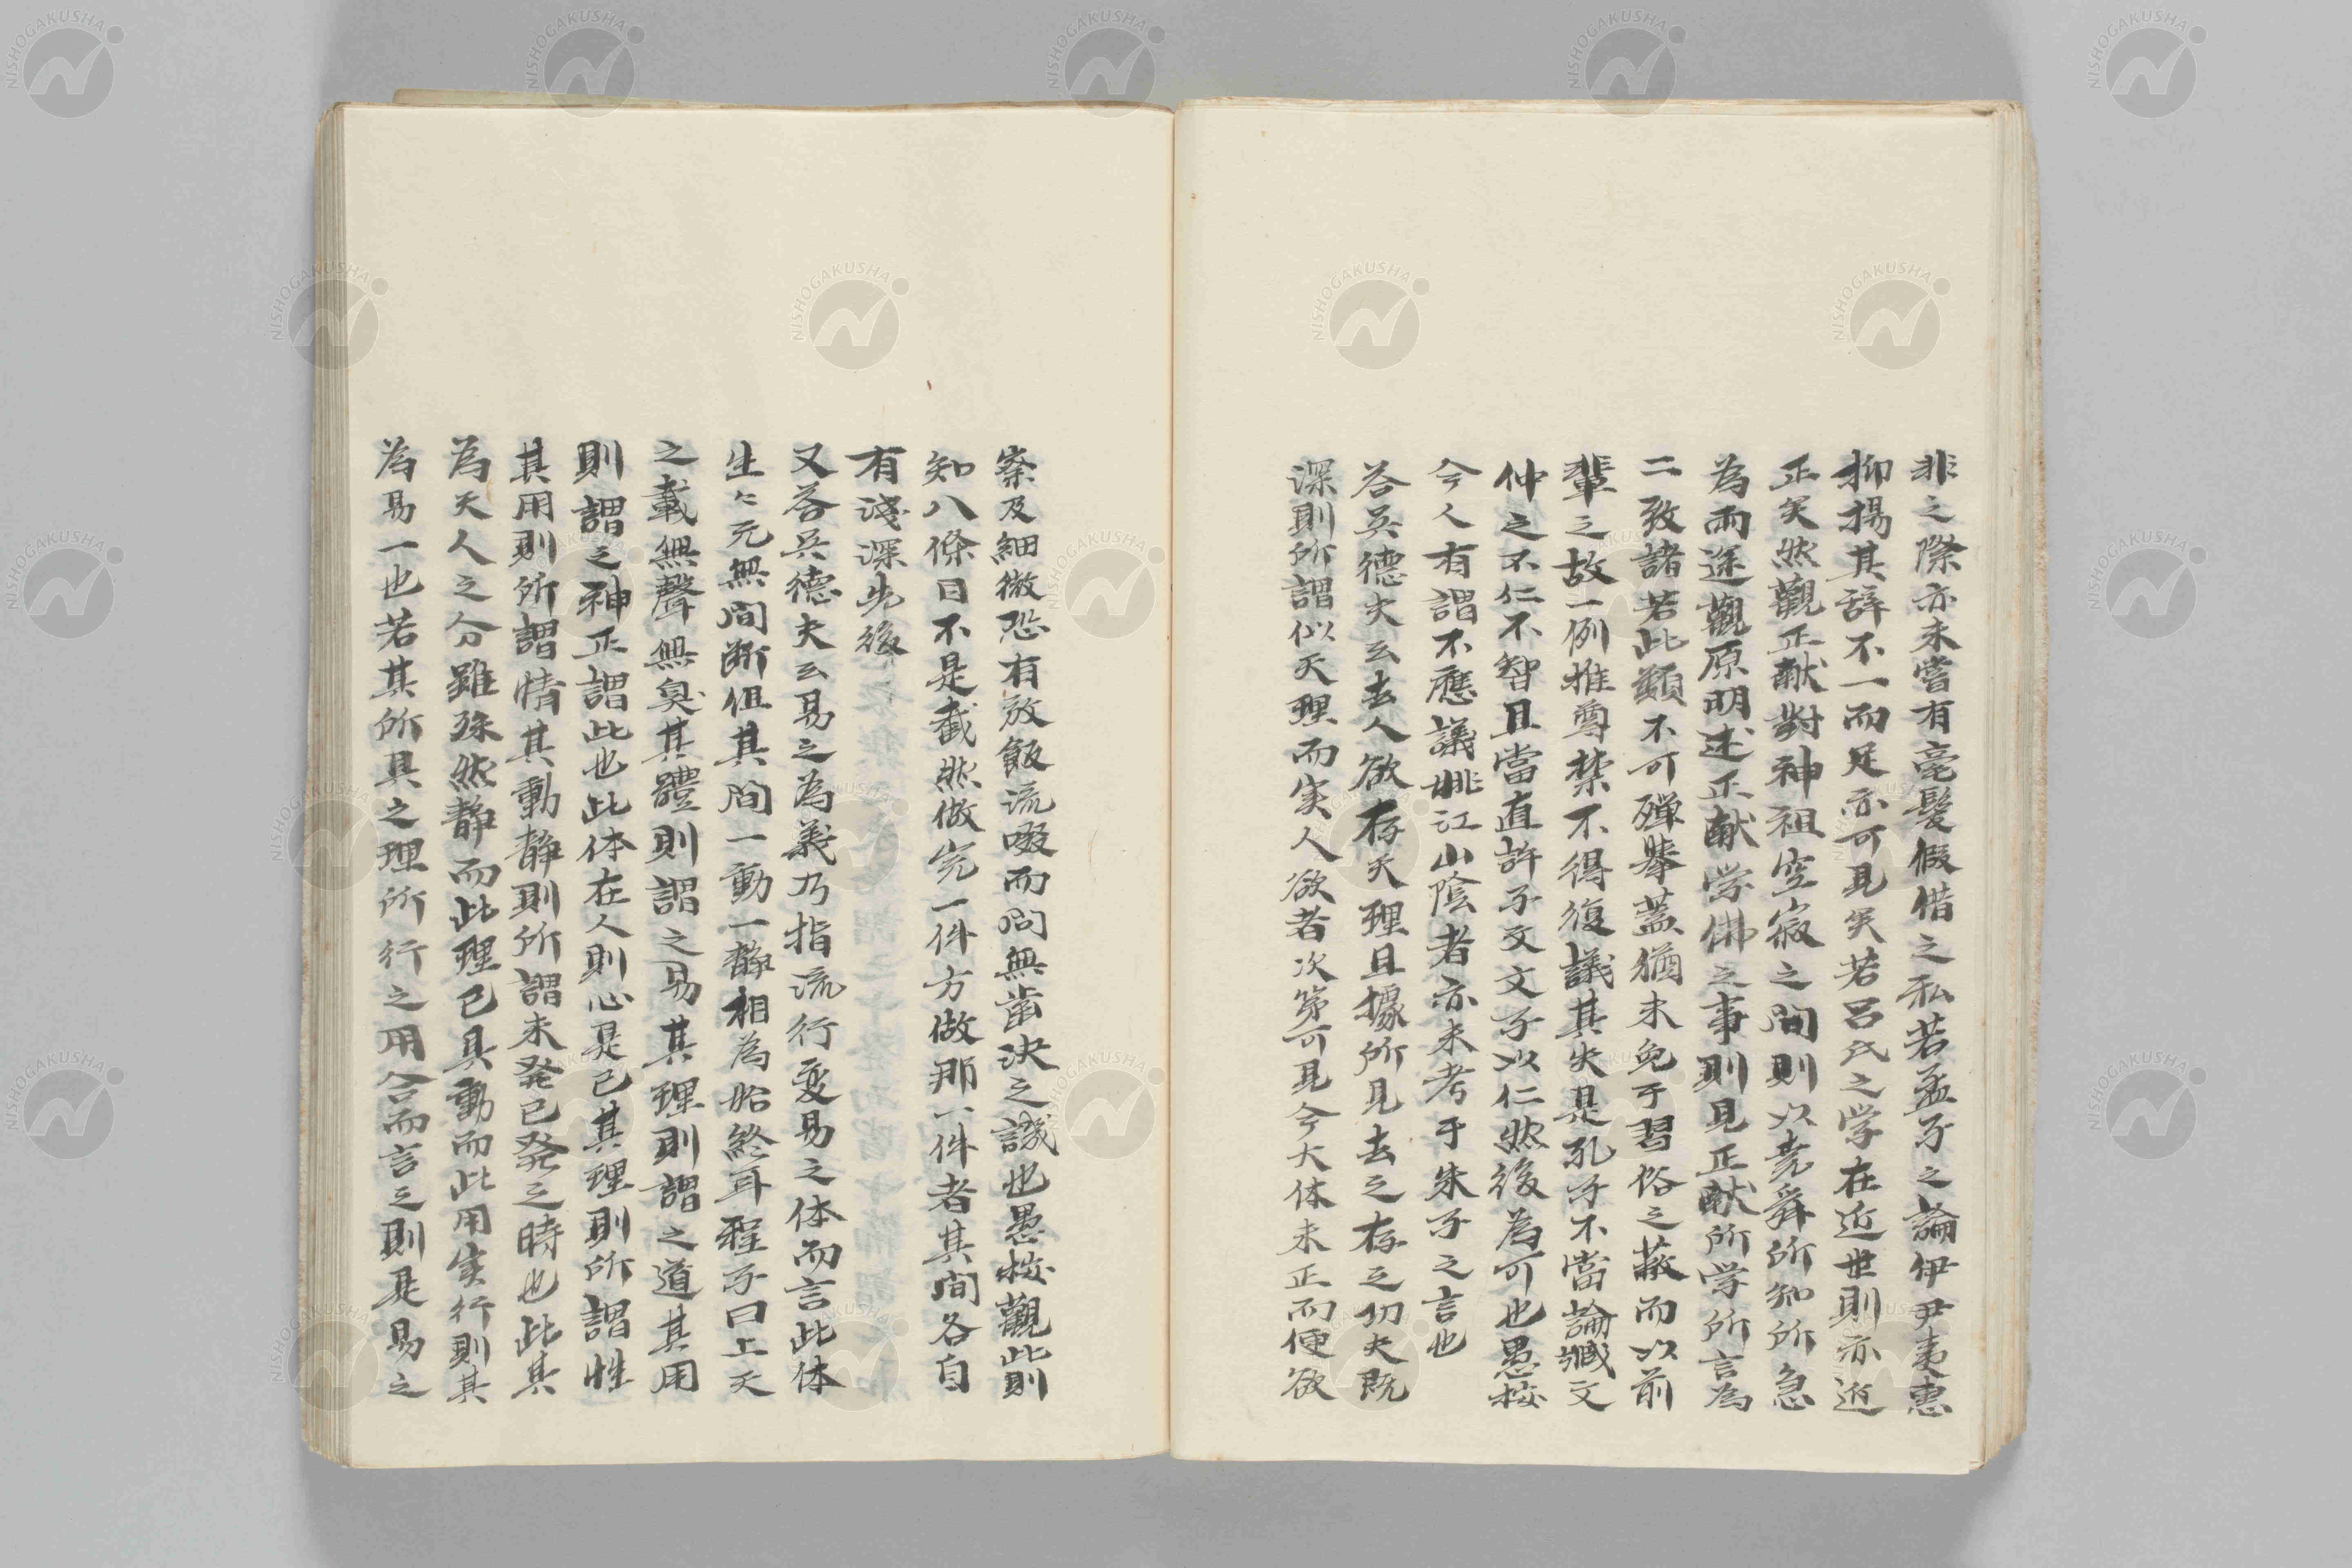 非之際亦未嘗有毫髮假借之私若孟子之論伊尹夷惠
抑揚其辞不一而足亦可見矣若呂氏之学在近世則亦近
正矣然觀正献對神祖空寂之間則以堯舜所知所急
為両途觀原明述正献学佛之事則見正献所学所言為
二致諸若此類不可殫挙蓋猶未免于習俗之蔽而以前
輩之故一例推尊禁不得復議其失是孔子不當論臧文
仲之不仁不智且當直許子文文子以仁然後為可也愚按
今人有謂不應議姚江山陰者亦未考于朱子之言也
答呉德夫云去人欲存天理且據所見去之存之功夫既
深則所謂似天理而実人欲者次第可見今大体未正而便欲
察及細微恐有放飯流啜而問無歯决之譏也愚按觀此則
知八條目不是截然做完一件方做那一件者其間各自
有淺深先後
又答呉德夫云易之為義乃指流行変易之体而言此体
生々元無間断但其間一動一静相為始終耳程子曰上天
之載無聲無臭其體則謂之易其理則謂之道其用
則謂之神正謂此也此体在人則心是已其理則所謂性
其用則所謂情其動静則所謂未発已発之時也此其
為天人之分雖殊然静而此理已具動而此用実行則其
為易一也若其所具之理所行之用合而言之則是易之
NISHOGAKUSHA